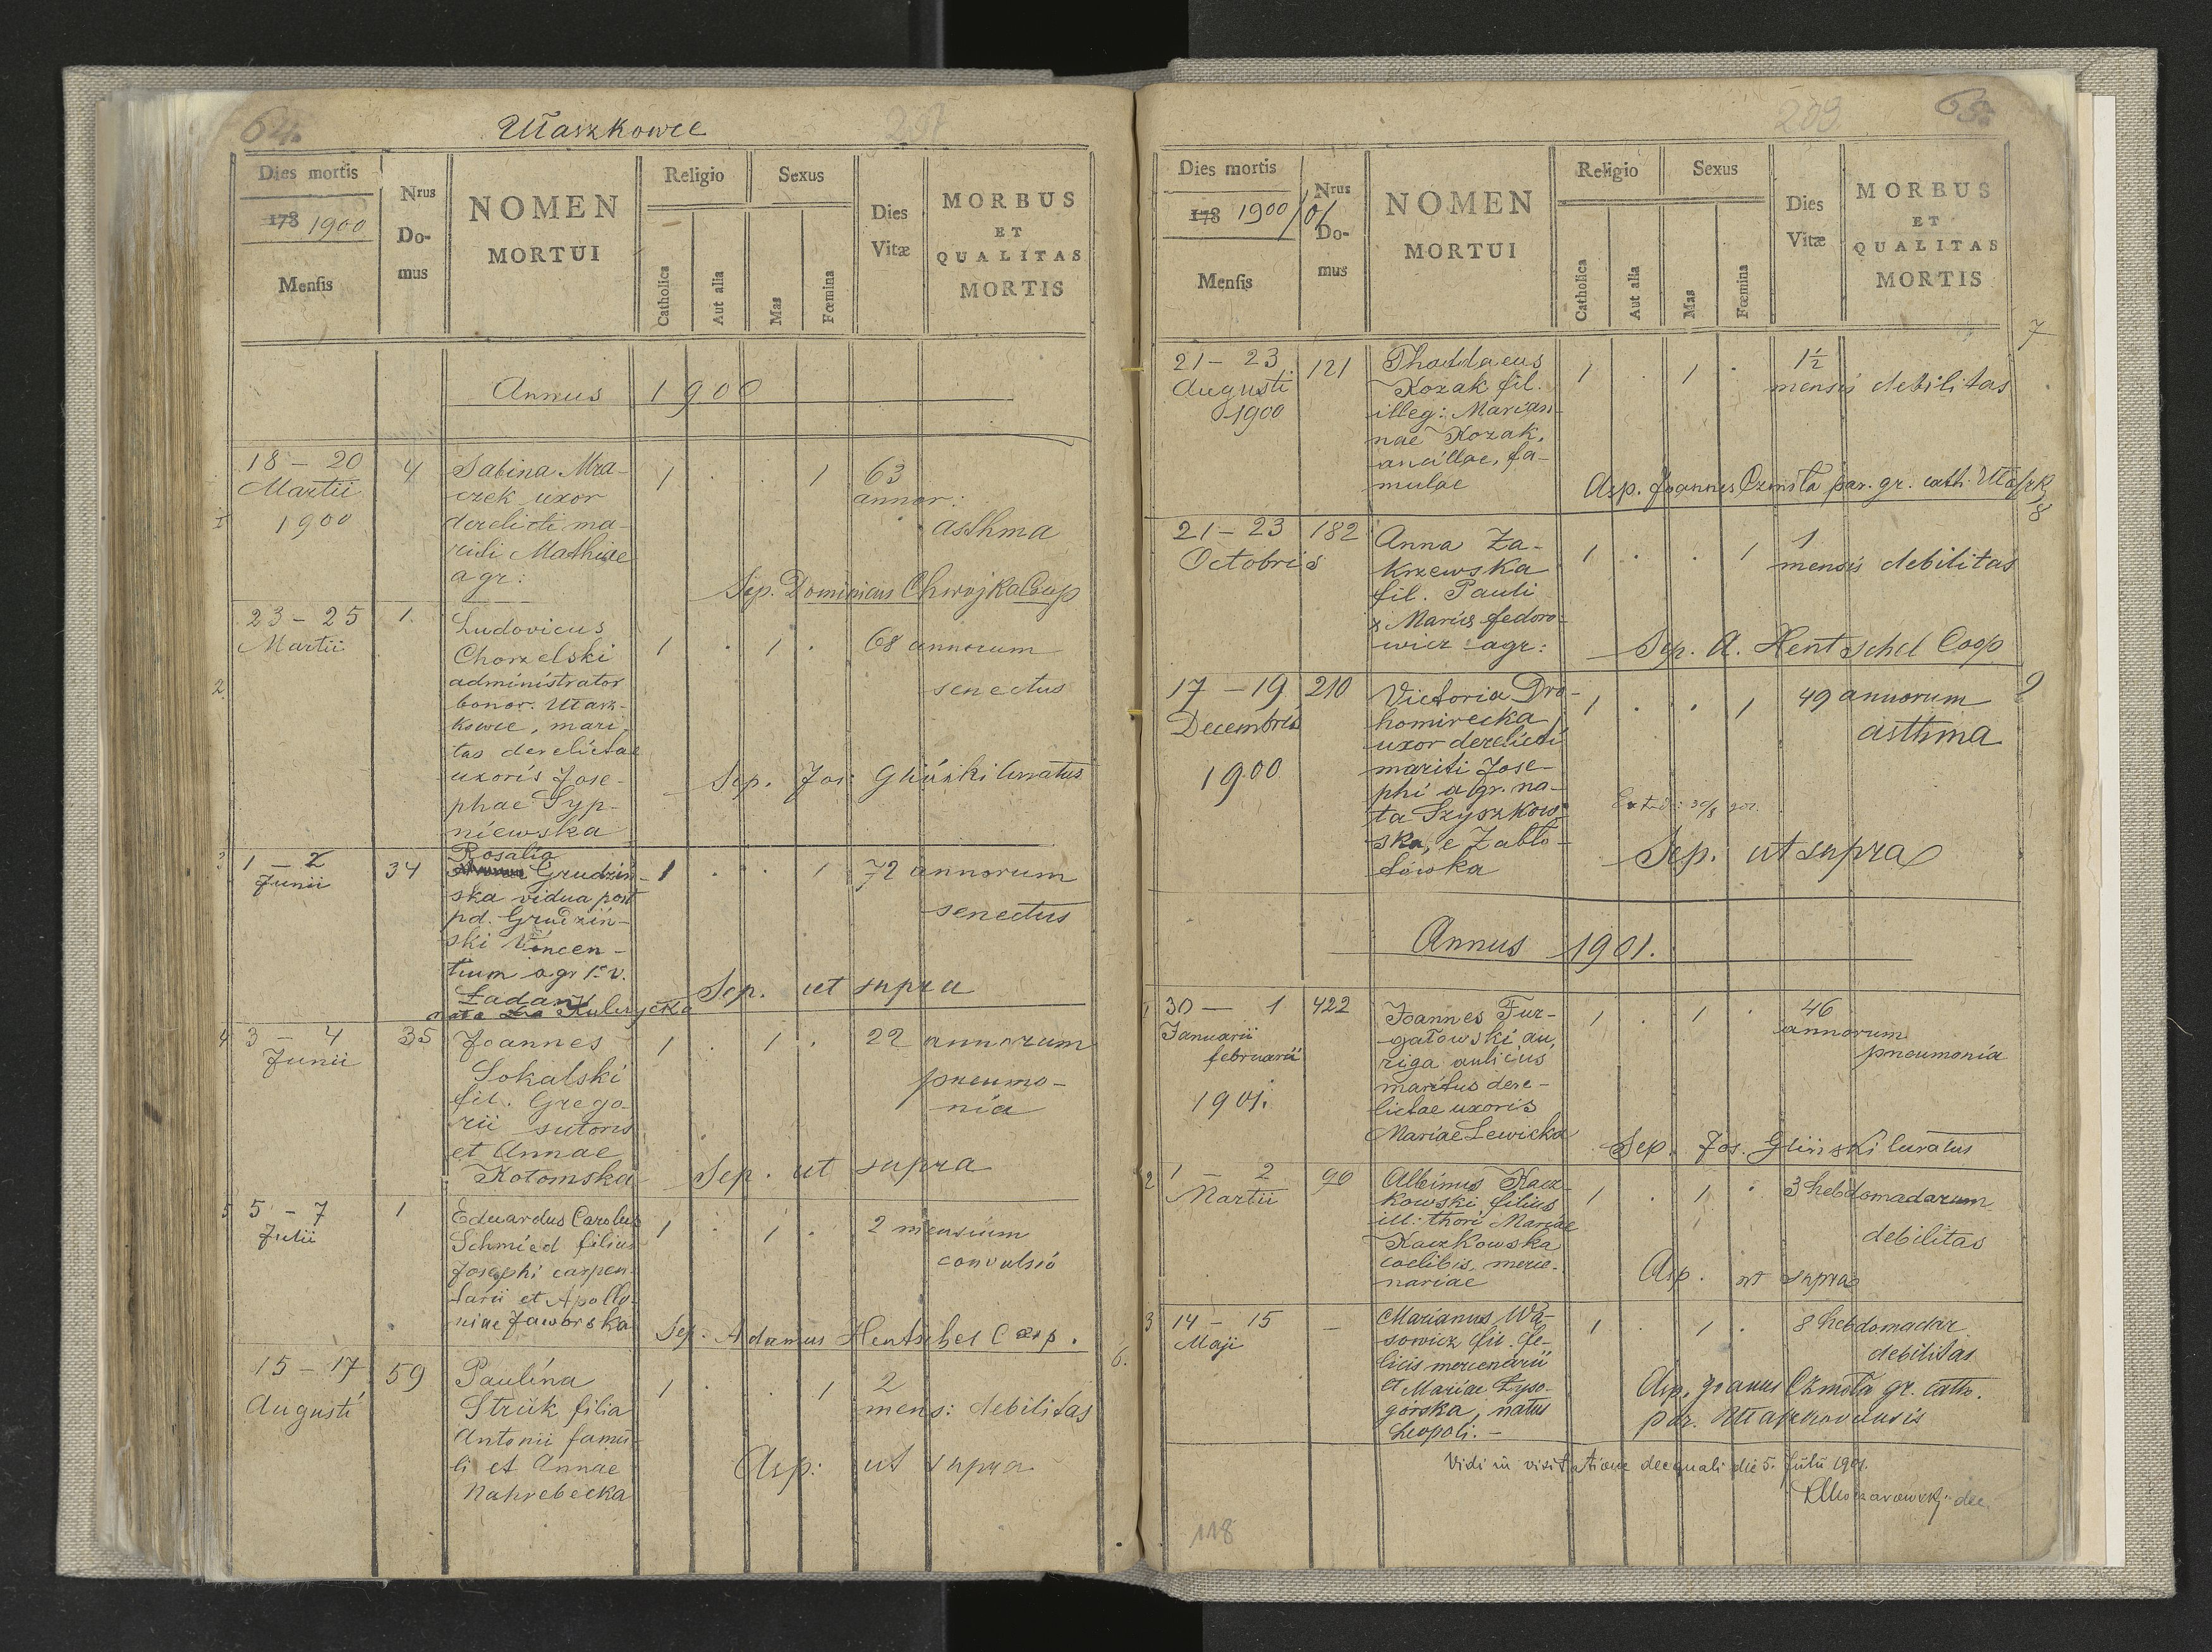 64.
Ułaszkowce
297
Dies mortis
178 1900
Mensis
Nrus
Do-
mus
NOMEN
MORTUI
Religio
Catholica
Aut alia
Sexus
Mas
Fœmina
Dies
Vitæ
MORBUS
ET
QUALITAS
MORTIS
Annus 1900
1
18 – 20
Martii
1900
4
Sabina Mra-
czek uxor
derelicti ma-
riti Mathiae
agr:
1 . . 1
63
annor:
asthma
Sep. Dominicus Chwojka Coop
2
23 – 25
Martii
1.
Ludovicus
Chorzelski
administrator
bonor. Ułasz-
kowce, mari-
tus derelictae
uxoris Jose-
phae Syp-
niewska
1 . 1 .
68 annorum
senectus
Sep. Jos. Gliński Curatus
3
1 – 2
Junii
34
Rosalia
Grudziń-
ska vidua post
pd. Grudziń-
ski Vincen-
tium agr 1º v.
Ładany
nata Kulczycka
1 . . 1
72 annorum
senectus
Sep. ut supra
4
3 – 4
Junii
35
Joannes
Sokalski
fil. Grego-
rii sutoris
et Annae
Kotomska
1 . 1 .
22 annorum
pneumo-
nia
Sep. ut supra
5
5 – 7
Julii
1
Eduardus Carolus
Schmied filius
Josephi carpen-
tarii et Apollo-
niae Jaworska
1 . 1 .
2 mensium
convulsio
Sep. Adamus Hentschel Coop.
6.
15 – 17
Augusti
59
Paulina
Struk filia
Antonii famu-
li et Annae
Nahrebecka
1 . . 1
2
mens: debilitas
Asp: ut supra
65.
299
Dies mortis
178 1900/01
Mensis
Nrus
Do-
mus
NOMEN
MORTUI
Religio
Catholica
Aut alia
Sexus
Mas
Fœmina
Dies
Vitæ
MORBUS
ET
QUALITAS
MORTIS
7
21 – 23
Augusti
1900
121
Thaddaeus
Kozak fil.
illeg: Marian-
nae Kozak,
ancillae, fa-
mulae
1 . 1 .
1½
mensis debilitas
Asp. Joannes Czmoła par. gr. cath. Ułaszk.
8
21 – 23
Octobris
182
Anna Za-
krzewska
fil. Pauli
& Mariis Fedoro-
wicz agr:
1 . . 1
1
mensis debilitas
Sep. A. Hentschel Coop
9
17 – 19
Decembris
1900
210
Victoria Dro-
homirecka,
uxor derelicti
mariti Jose-
phi agr. na-
ta Szyszkow-
ska, e Zabło-
tówka
1 . . 1
49 annorum
asthma
Extrd: 30/8 901.
Sep. ut supra
Annus 1901.
1
30 – 1
Januarii
februarii
1901.
422
Joannes Fur-
gałowski au-
riga aulicus
maritus dere-
lictae uxoris
Mariae Lewicka
1 . 1 .
46
annorum
pneumonia
Sep. Jos. Gliński Curatus
2
1 – 2
Martii
90
Albinus Kacz-
kowski filius
ill: thori Mariae
Kaczkowska
coelibis, merce-
nariae
1 . 1 .
3 hebdomadarum
debilitas
Asp. ut supra
3
14 – 15
Maji
–
Marianus Wą-
sowicz fil. Fe-
licis mercenarii
et Mariae Łyso-
górska, natus
Leopoli. –
1 . 1 .
8 hebdomadar
debilitas
Asp. Joannes Czmoła gr. cath.
par. Ułaszkovcensis
Vidi in visitatione decanali die 5. Julii 1901.
dec.
118